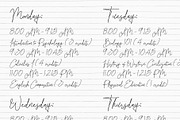 Monday:
8:00 AM - 9:15 AM
Introduction to Psychology (3 credits)
9:30 AM - 10:45 AM
Calculus I (4 credits)
11:00 AM - 12:15 PM
English Composition (3 credits)
Tuesday:
8:00 AM - 9:15 AM
Biology 101 (4 credits)
9:30 AM - 10:45 AM
History of Western Civilization (3
11:00 AM - 12:15 PM
Physical Education (1 credit)
Wednesday:
8:00 AM - 9:15 AM
Thursday:
8:00 AM - 9:15 AM